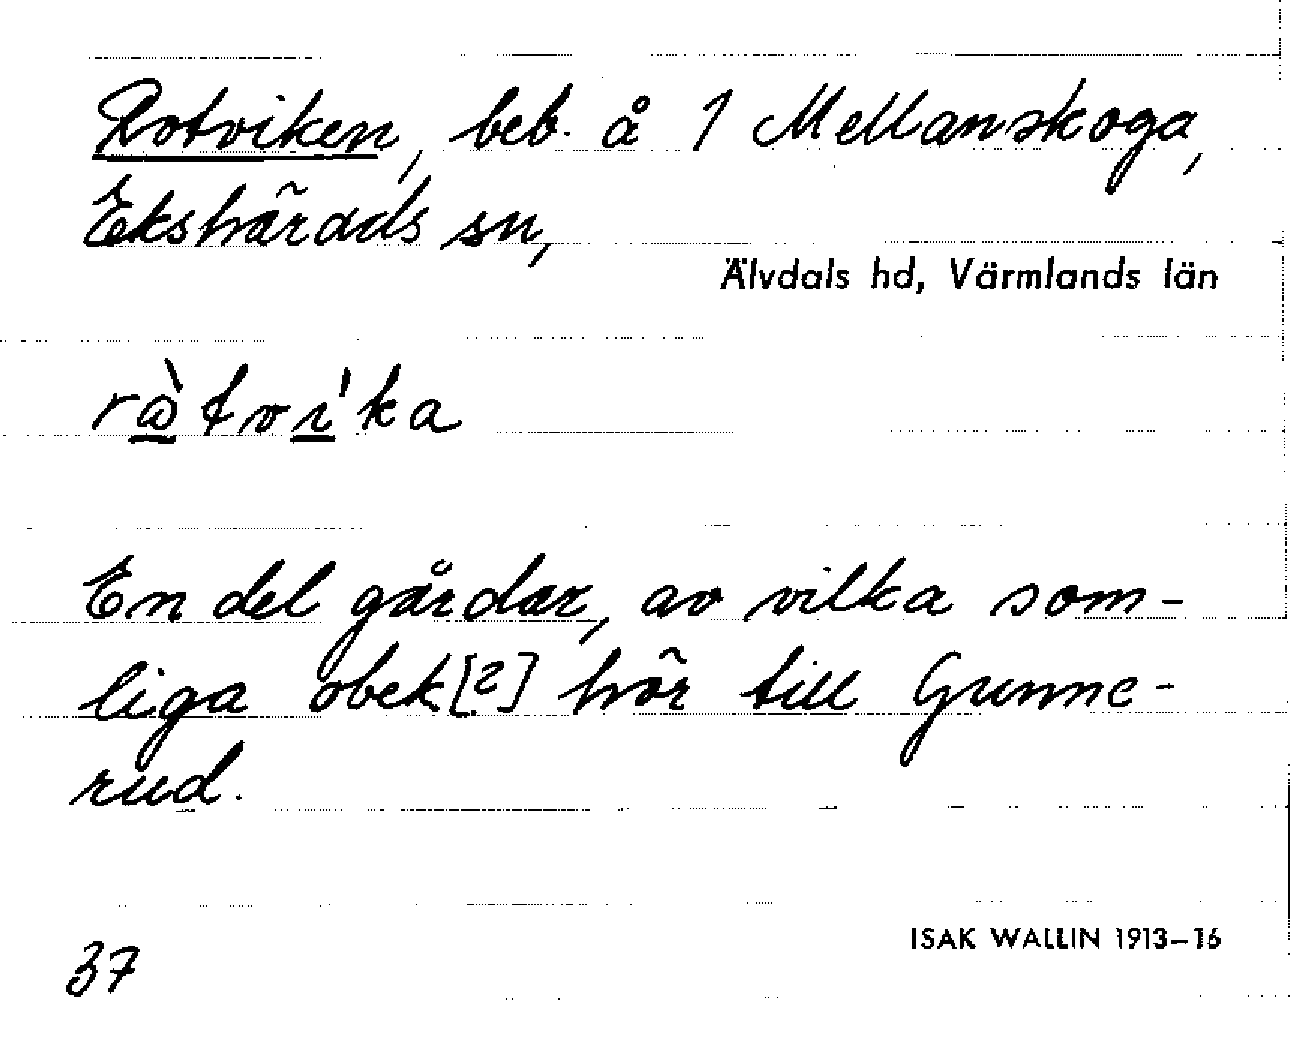 Rotviken, beb. å 1 Mellanskoga,
Ekshärads sn,
Älvdals hd, Värmlands län
rὼtvi'ka
En del gårdar, av vilka som-
liga obek[?] hör till Gunne-
rud.
ISAK WALLIN 1913–16
37